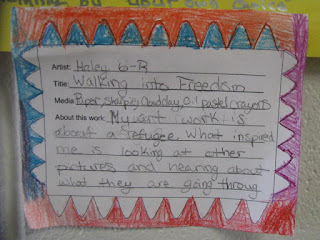 by your
Artist: Haley 6-B
Title: Walking into Freedom
Media Paper, sharpie, oil pastel, crayons
About this work: My art work is
about a refugee. What inspired
me is looking at other
pictures and hearing about
what they are going throug